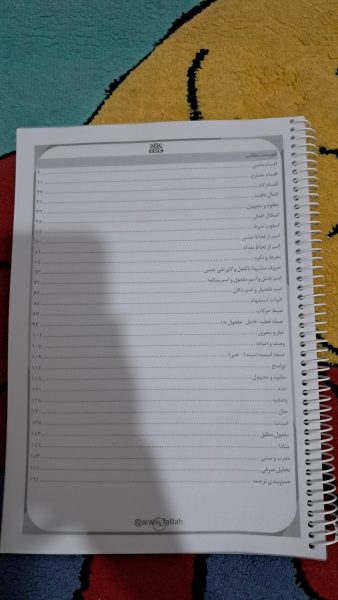 فهرست مطالب
اقسام ماضی
اقسام مضارع ۱۱
اقسام امر
افعال ناقصه
معلوم و مجهول
اشکال افعال
اسلوب شرط
اسم از لحاظ جنس
اسم از لحاظ تعداد
معرفه و نکره
حروف مشبهة بالفعل ولای نفی جنس
اسم فاعل و اسم مفعول و اسم مبالغه
اسم تفضیل و اسم مکان
ادوات استفهام
ضبط حرکات ۸۷
جمله فعلیه (فاعل - مفعول به) ۹۳
جار و مجروری ۱۰۶
وصف و اضافه ۱۰۵
جمله اسمیه (مبتدا - خبر) ۱۰۹
نواسخ ۱۱۱
معلوم و مجهول ۱۱۸
عدد ۱۲۱
وصفیه ۱۲۸
حال ۱۳۰
استثنا ۱۳۸
مفعول مطلق ۱۴۲
منادا ۱۴۶
معرب و مبنی ۱۵۳
تحلیل صرفی ۱۵۵
جمع‌بندی ترجمه ۱۶۱